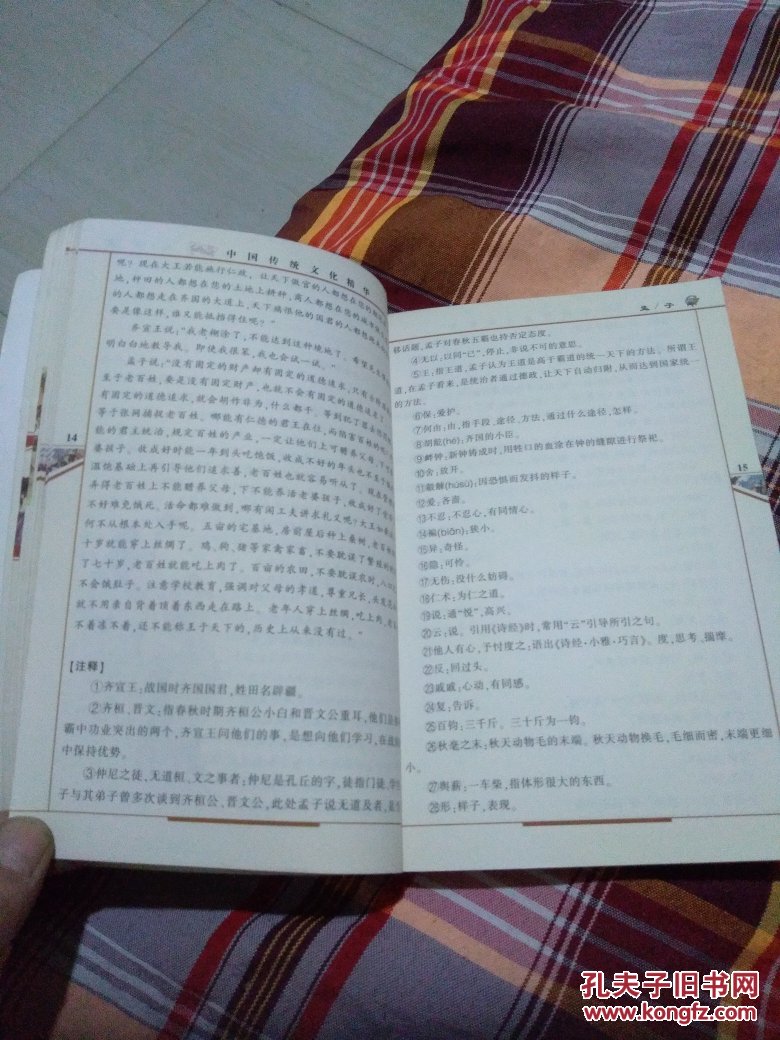 中国传统文化精华
呢？现在大王若能施行仁政，让天下做官的人都想在您的
地，种田的人都想在您的土地上耕种，商人都想在您的
的人都想走在齐国的大道上，天下痛恨他的国君的人都想
要是像这样，谁又能抵挡得住呢？”
齐宣王说：“我老糊涂了，不能达到这种境地了。希望
明白白地教导我。即使我很笨，我也会试一试。”
孟子说：“没有固定的财产却有固定的道德追求，只有
至于老百姓，要是没有固定财产，也就不会有固定的道德追求。
有固定的道德追求，就会胡作非为，什么都干。等到犯了罪
等于张网捕捉老百姓。哪能有仁德的君王在位，而陷害百姓
能的君主统治，规定百姓的产业，一定让他们上可赡养父母，下
14
婆孩子。收成好时能一年到头吃饱饭，收成不好的年头也不至于
温饱基础上再引导他们追求善，老百姓也就容易听从了。现在
弄得老百姓上不能赡养父母，下不能养活老婆孩子，
不好难免饿死。活命都难做到，哪有闲工夫讲求礼义呢？大王如
何不从根本处入手呢。五亩的宅基地，房前屋后种上桑树，老
十岁就能穿上丝绸了。鸡、狗、猪等家禽家畜，不要耽误了繁殖
了七十岁，老百姓就能吃上肉了。百亩的农田，不要耽误农时，八口
不会饿肚子。注意学校教育，强调对父母的孝道，尊重兄长，头发
就不用亲自背着顶着东西走在路上。老年人穿上丝绸，吃上肉，老
不着冻不着，还不能称王于天下的，历史上从来没有过。”
【注释】
①齐宣王：战国时齐国国君，姓田名辟疆。
②齐桓、晋文：指春秋时期齐桓公小白和晋文公重耳，他们
霸中功业突出的两个，齐宣王问他们的事，是想向他们学习，在战
中保持优势。
③仲尼之徒，无道桓、文之事者：仲尼是孔丘的字，徒指门徒、学
子与其弟子曾多次谈到齐桓公、晋文公，此处孟子说无道及者，是
孟/子
移话题，孟子对春秋五霸也持否定态度。
④无以：以同“已”，停止，非说不可的意思。
⑤王：指王道，孟子认为王道是高于霸道的统一天下的方法。所谓王
道，在孟子看来，是统治者通过德政，让天下自动归附，从而达到国家统一
的方法。
⑥保：爱护。
⑦何由：由，指手段、途径、方法，通过什么途径，怎样。
⑧胡龁(hé)：齐国的小臣。
⑨衅钟：新钟铸成时，用牲口的血涂在钟的缝隙进行祭祀。
⑩舍：放开。
15
⑪觳觫(húsù)：因恐惧而发抖的样子。
⑫爱：吝啬。
⑬不忍：不忍心，有同情心。
⑭褊(biǎn)：狭小。
⑮异：奇怪。
⑯隐：可怜。
⑰无伤：没什么妨碍。
⑱仁术：为仁之道。
⑲说：通“悦”，高兴。
⑳云：说。引用《诗经》时，常用“云”引导所引之句。
㉑他人有心，予忖度之：语出《诗经·小雅·巧言》。度，思考、揣摩。
㉒反：回过头。
㉓戚戚：心动，有同感。
㉔复：告诉。
㉕百钧：三千斤。三十斤为一钧。
㉖秋毫之末：秋天动物毛的末端。秋天动物换毛，毛细而密，末端更细
小。
㉗舆薪：一车柴，指体形很大的东西。
㉘形：样子，表现。
孔夫子旧书网
www.kongfz.com